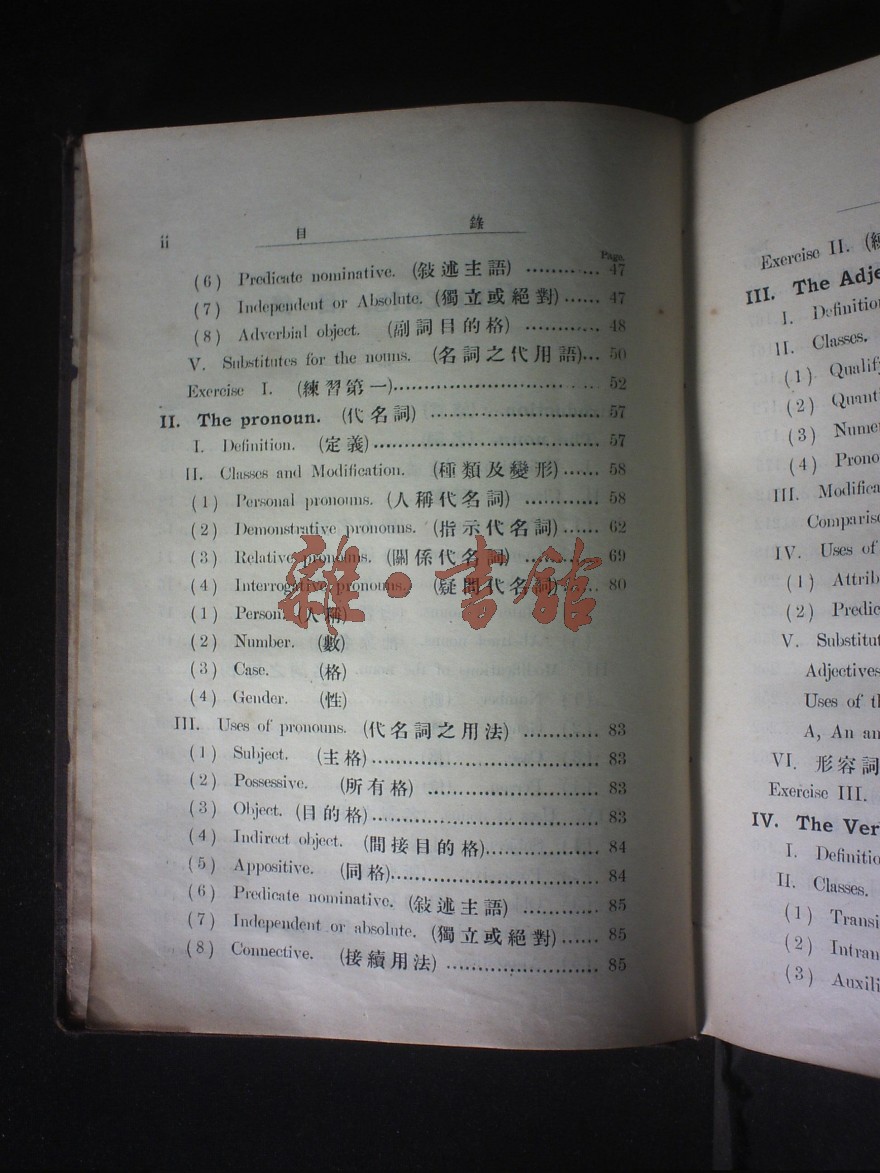 ii 目 錄
Page.
(6) Predicate nominative. (敍述主語) ............ 47
(7) Independent or Absolute. (獨立或絕對)...... 47
(8) Adverbial object. (副詞目的格) ............ 48
V. Substitutes for the nouns. (名詞之代用語)... 50
Exercise I. (練習第一)............................ 52
II. The pronoun. (代名詞) ........................ 57
I. Definition. (定義)................................ 57
II. Classes and Modification. (種類及變形)...... 58
(1) Personal pronouns. (人稱代名詞) ............ 58
(2) Demonstrative pronouns. (指示代名詞)...... 62
(3) Relative pronouns. (關係代名詞) ............ 69
(4) Interrogative pronouns. (疑問代名詞)...... 80
(1) Person. (人稱)
(2) Number. (數)
(3) Case. (格)
(4) Gender. (性)
III. Uses of pronouns. (代名詞之用法) ............ 83
(1) Subject. (主格)................................ 83
(2) Possessive. (所有格) ........................ 83
(3) Object. (目的格)................................ 83
(4) Indirect object. (間接目的格).................. 84
(5) Appositive. (同格)............................ 84
(6) Predicate nominative. (敍述主語) ............ 85
(7) Independent or absolute. (獨立或絕對)...... 85
(8) Connective. (接續用法) ...................... 85
雜·書館
Exercise II. (練
III. The Adje
I. Definition
II. Classes.
(1) Qualify
(2) Quanti
(3) Nume
(4) Prono
III. Modifica
Compariso
IV. Uses of
(1) Attrib
(2) Predic
V. Substitut
Adjectives
Uses of th
A, An an
VI. 形容詞
Exercise III.
IV. The Ver
I. Definitio
II. Classes.
(1) Transi
(2) Intran
(3) Auxili